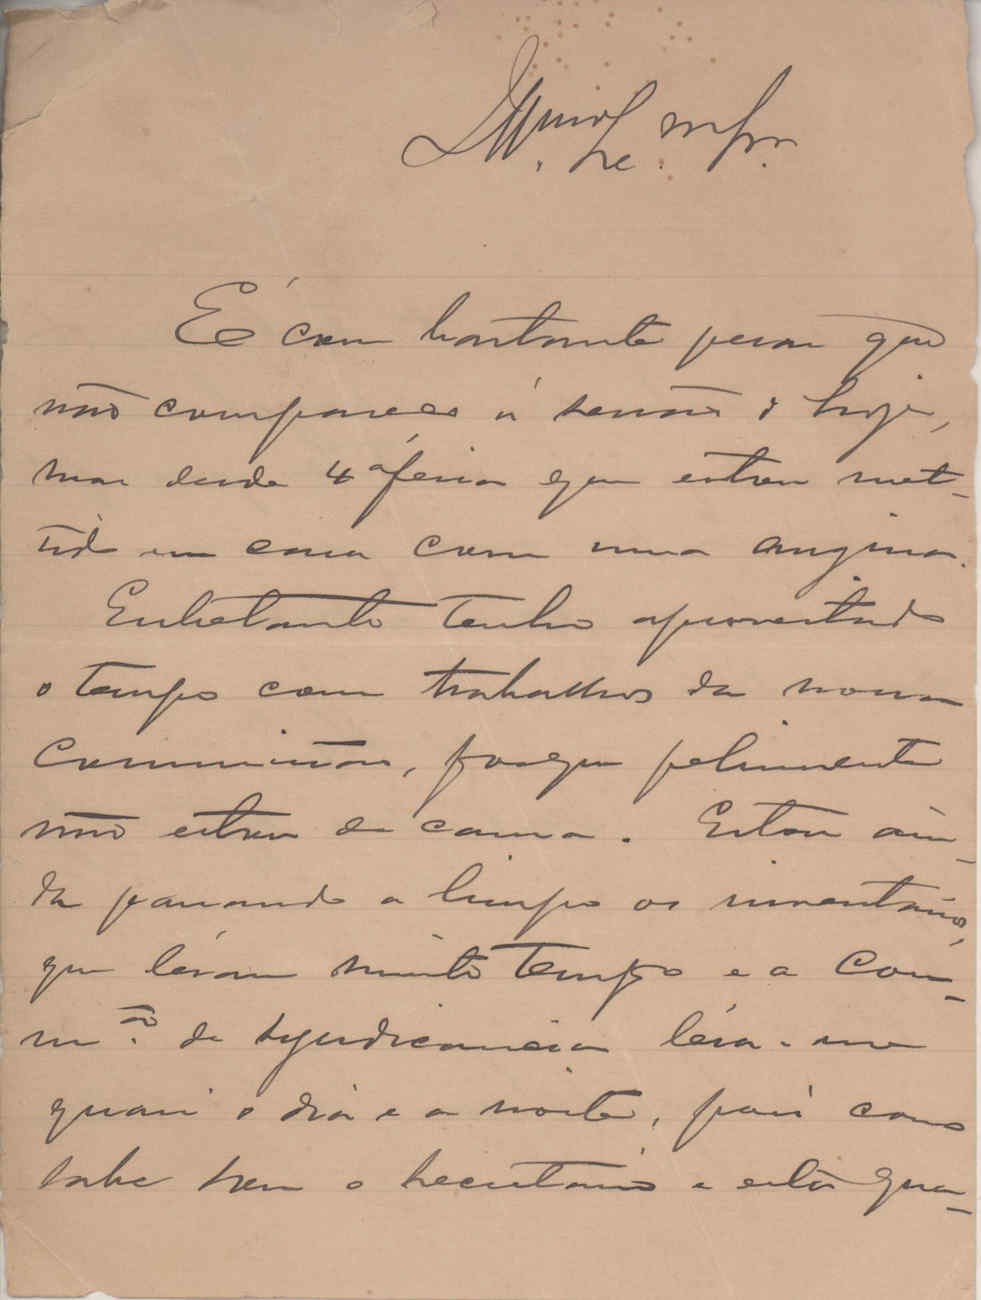 É com bastante pesar que
não compareço á sessão d' hoje,
mas desde 4ª feira que estou met-
tido em casa com uma angina.
Entretanto tenho aproveitado
o tempo com trabalhos da nossa
Commissão, porque felizmente
não estou de cama. Estou ain-
da passando a limpo os inventários,
que lévam muito tempo e a Com-
m.ão de syndicancia léva-me
quasi o dia e a noite, pois como
sabe sou o secretario e está qua-